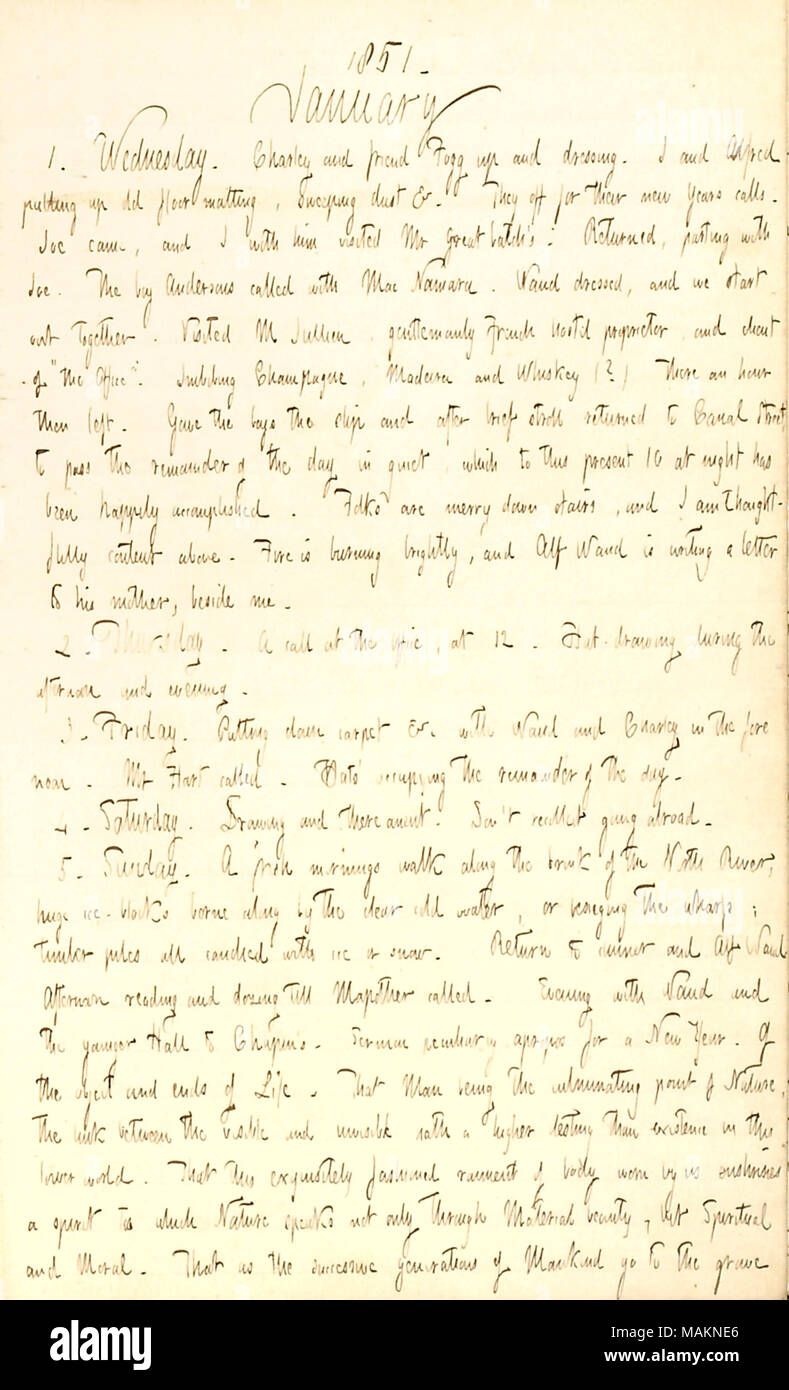 1851.
January
1. Wednesday. Charley and friend Fogg up and dressing. I and Alfred
putting up old floor matting, sweeping dust &c. They off for their new Years calls.
Joe came, and I with him visited Mr Greatbatch's. Returned, parting with
Joe. The boy Andersons called with Mac Namara. Waud dressed, and we start
out together. Visited M Jullien, gentlemanly French hostel proprietor, and client
of "the Office". Imbibing Champagne, Madeira and Whiskey (?) There an hour
then left. Gave the boys the slip and after brief stroll returned to Canal Street
to pass the remainder of the day in quiet, which to this present 10 at night has
been happily accomplished. Folks are merry down stairs, and I am thought-
fully content above. Fire is burning brightly, and Alf Waud is writing a letter
to his mother, beside me.
2. Thursday. A call at the office, at 12. drawing during the
afternoon and evening.
3. Friday. Putting down carpet &c with Waud and Charley in the fore
noon. Mr Hart called. occupying the remainder of the day.
4. Saturday. Drawing and there anent. Don't recollect going abroad.
5. Sunday. A fresh mornings walk along the brink of the North River,
huge ice-blocks borne along by the clear cold water, or besieging the wharfs;
timber piles all candied with ice or snow. Return to dinner and Alf Waud
Afternoon reading and dozing till Mapother called. Evening with Waud and
the younger Hall to Chapin's. Sermon peculiarly apropos for a New Year. Of
the object and ends of Life. That Man being the culminating point of Nature,
the link between the visible and invisible hath a higher destiny than existence in this
lower world. That this exquisitely fashioned raiment of body worn by us enshrines
a spirit to which Nature speaks not only through Material beauty, but Spiritual
and Moral. That as the successive generations of Mankind go to the grave
alamy
Image ID: MAKNE6
www.alamy.com